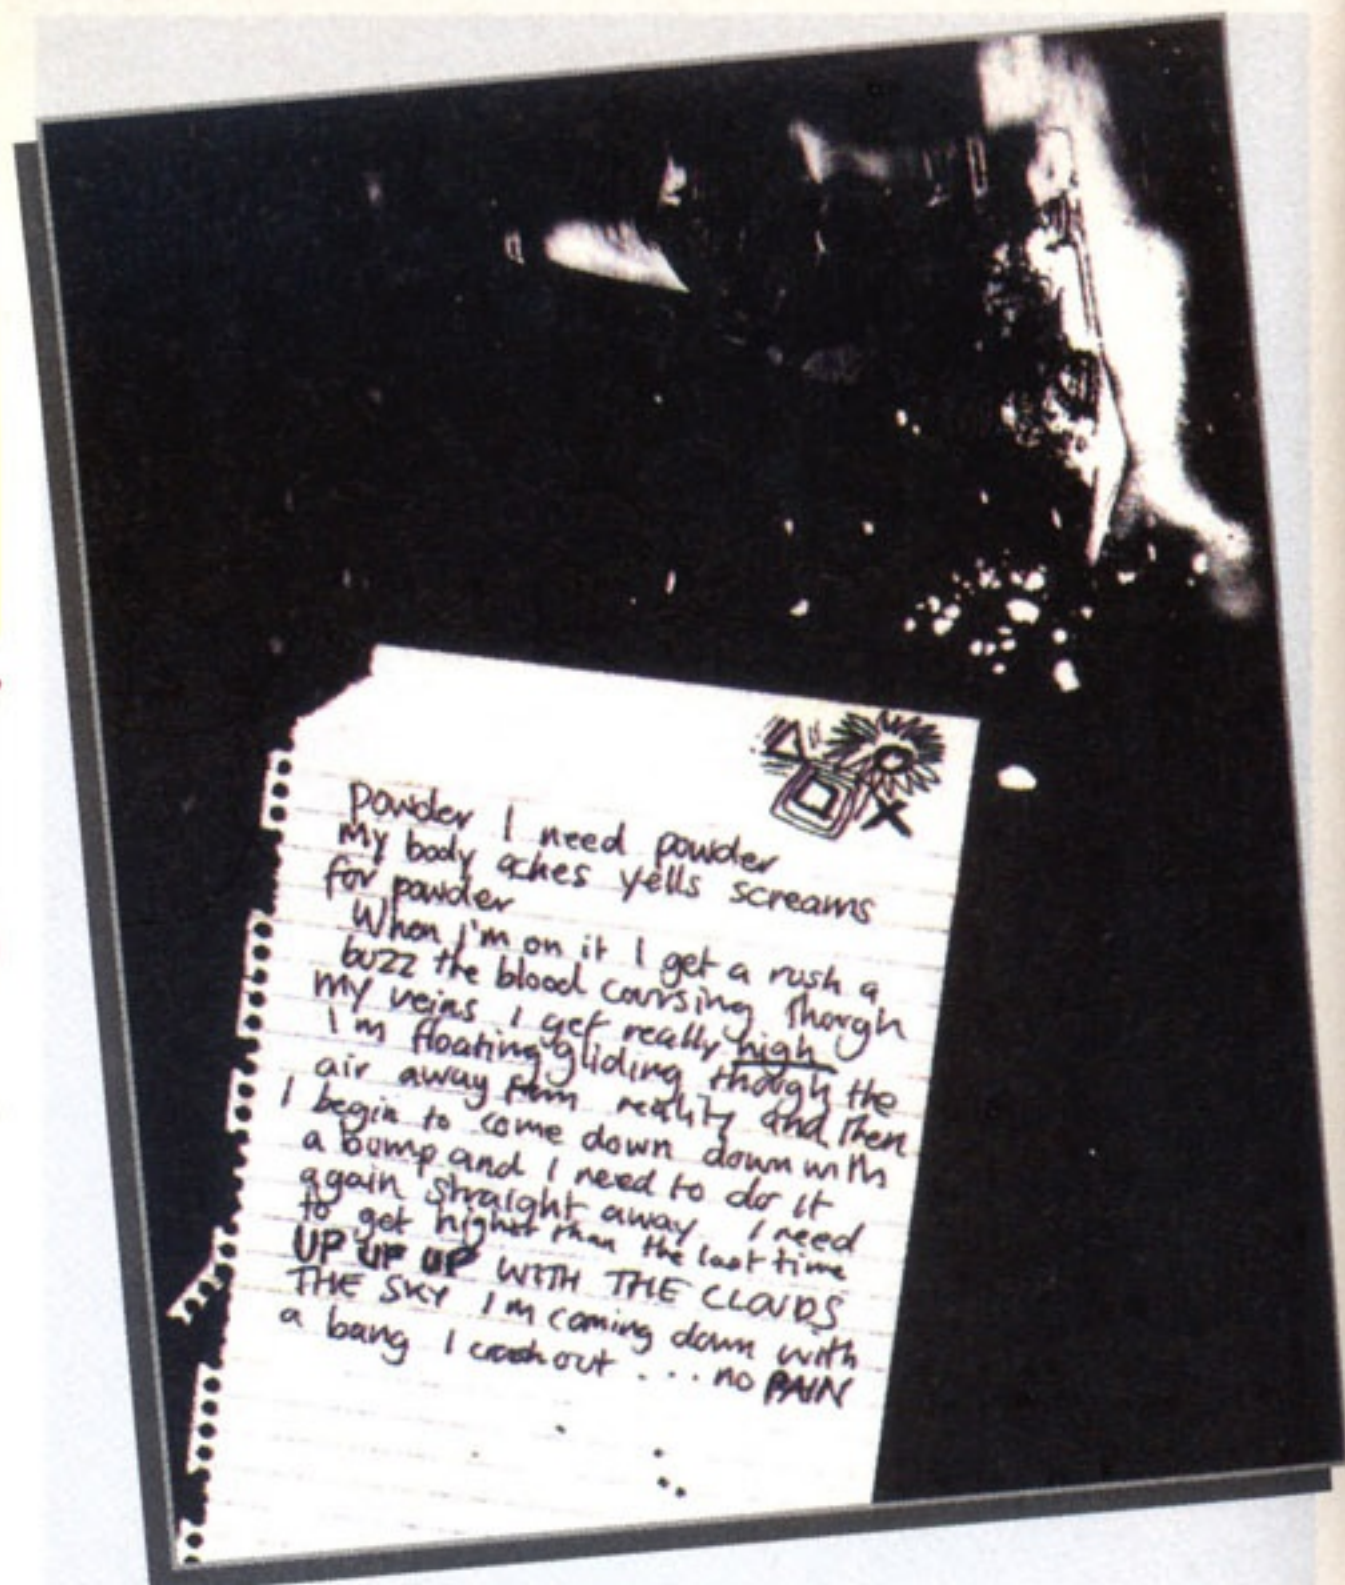 powder I need powder
My body aches yells screams
for powder
When I'm on it I get a rush a
buzz the blood coursing thorgh
my veins I get really high
I'm floating gliding though the
air away from reality and then
I begin to come down down with
a bump and I need to do it
again straight away I need
to get higher than the last time
UP UP UP WITH THE CLOUDS
THE SKY I'm coming down with
a bang I crash out ... no PAIN